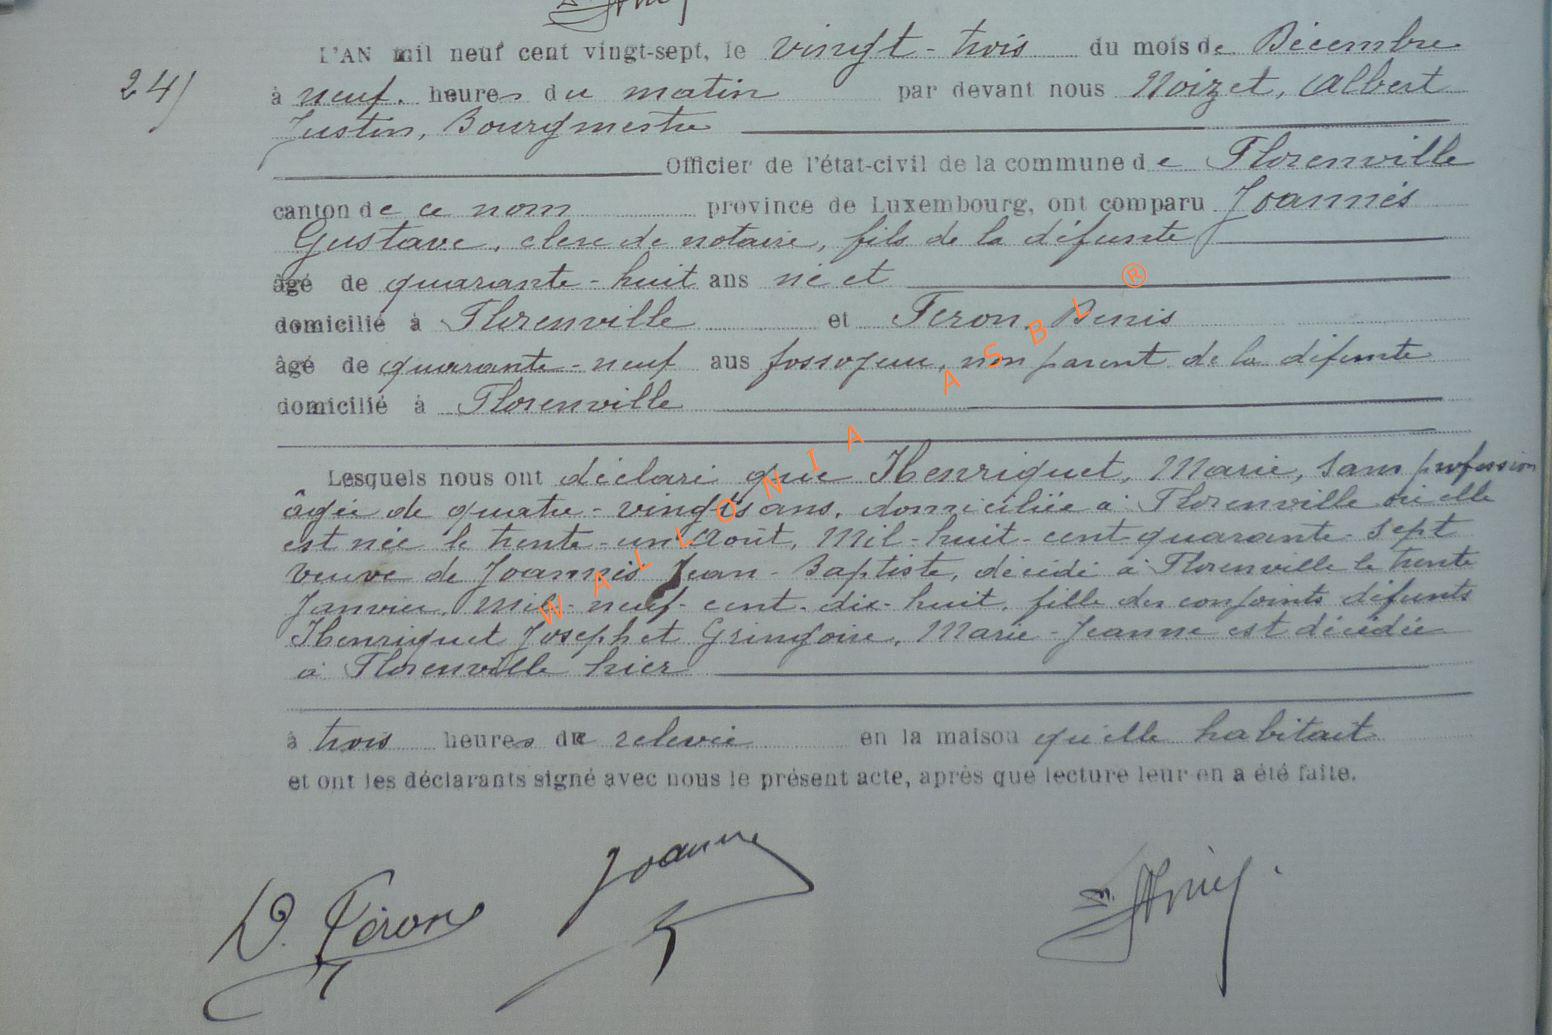 L'AN mil neuf cent vingt-sept, le vingt-trois du mois de Décembre
24/ à neuf heures du matin par devant nous Noizet, Albert
Justin, Bourgmestre
Officier de l'état-civil de la commune de Florenville
canton de ce nom province de Luxembourg, ont comparu Joannès
Gustave, clerc de notaire, fils de la défunte
âgé de quarante-huit ans né et
domicilié à Florenville et Feron, Denis
âgé de quarante-neuf ans fossoyeur, non parent de la défunte
domicilié à Florenville
Lesquels nous ont déclaré que Henriquet, Marie, sans profession
âgée de quatre-vingts ans, domiciliée à Florenville où elle
est née le trente-un Août, Mil-huit-cent quarante-sept
veuve de Joannès Jean-Baptiste, décédé à Florenville le trente
Janvier, Mil-neuf-cent-dix-huit, fille des conjoints défunts
Henriquet Joseph et Gringoire, Marie-Jeanne est décédée
à Florenville hier
à trois heures de relevée en la maison qu'elle habitait
et ont les déclarants signé avec nous le présent acte, après que lecture leur en a été faite.
D. Féron Joannes
WALLONIA ASBL ®